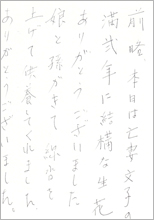 前略、本日は亡妻文子の
満弐年に結構な生花
ありがとうございました
娘と孫がきて線香を
上げて供養してくれました
ありがとうございました。